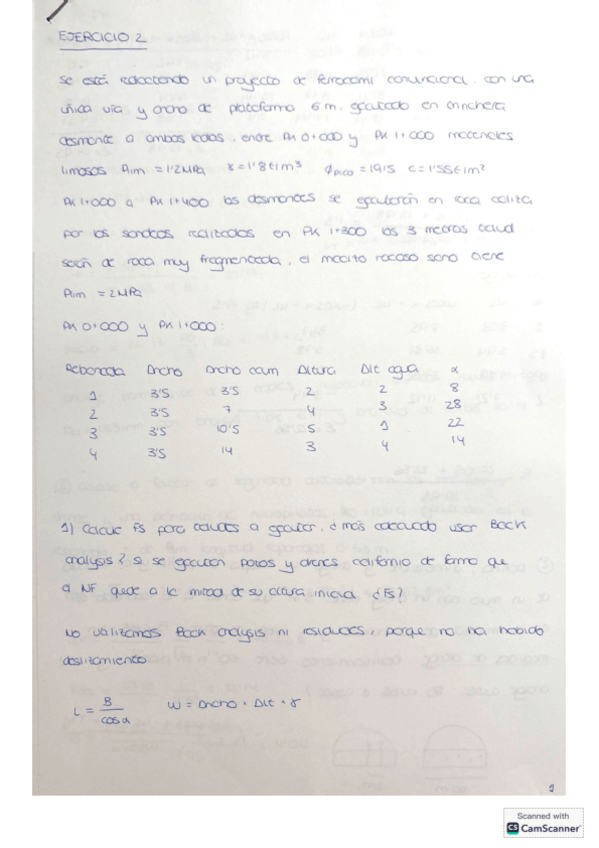 EJERCICIO 2
Se está redactando un proyecto de ferrocarril convencional, con una
única vía y ancho de plataforma 6 m, ejecutado en trinchera
desmonte a ambos lados, entre PK 0+000 y PK 1+000 materiales
limosos Plim = 1'2 MPa γ = 1'8 t/m³ ϕpico = 19'5 c = 1'55 t/m²
PK 1+000 a PK 1+400 los desmontes se ejecutarán en roca caliza
por los sondeos realizados en PK 1+300 los 3 metros talud
serán de roca muy fragmentada, el macizo rocoso sano tiene
Plim = 2 MPa
PK 0+000 y PK 1+000:
Rebanada Ancho Ancho acum Altura Alt agua α
1 3'5 3'5 2 2 8
2 3'5 7 4 3 28
3 3'5 10'5 5 1 22
4 3'5 14 3 4 14
1) Calcule FS para taludes a ejecutar, ¿más adecuado usar Back
analysis? Si se ejecutan pozos y drenes california de forma que
el NF quede a la mitad de su altura inicial ¿FS?
No utilizamos Back analysis ni residuales, porque no ha habido
deslizamiento
L = B / cos α W = Ancho · Alt · γ
1
Scanned with
CS CamScanner